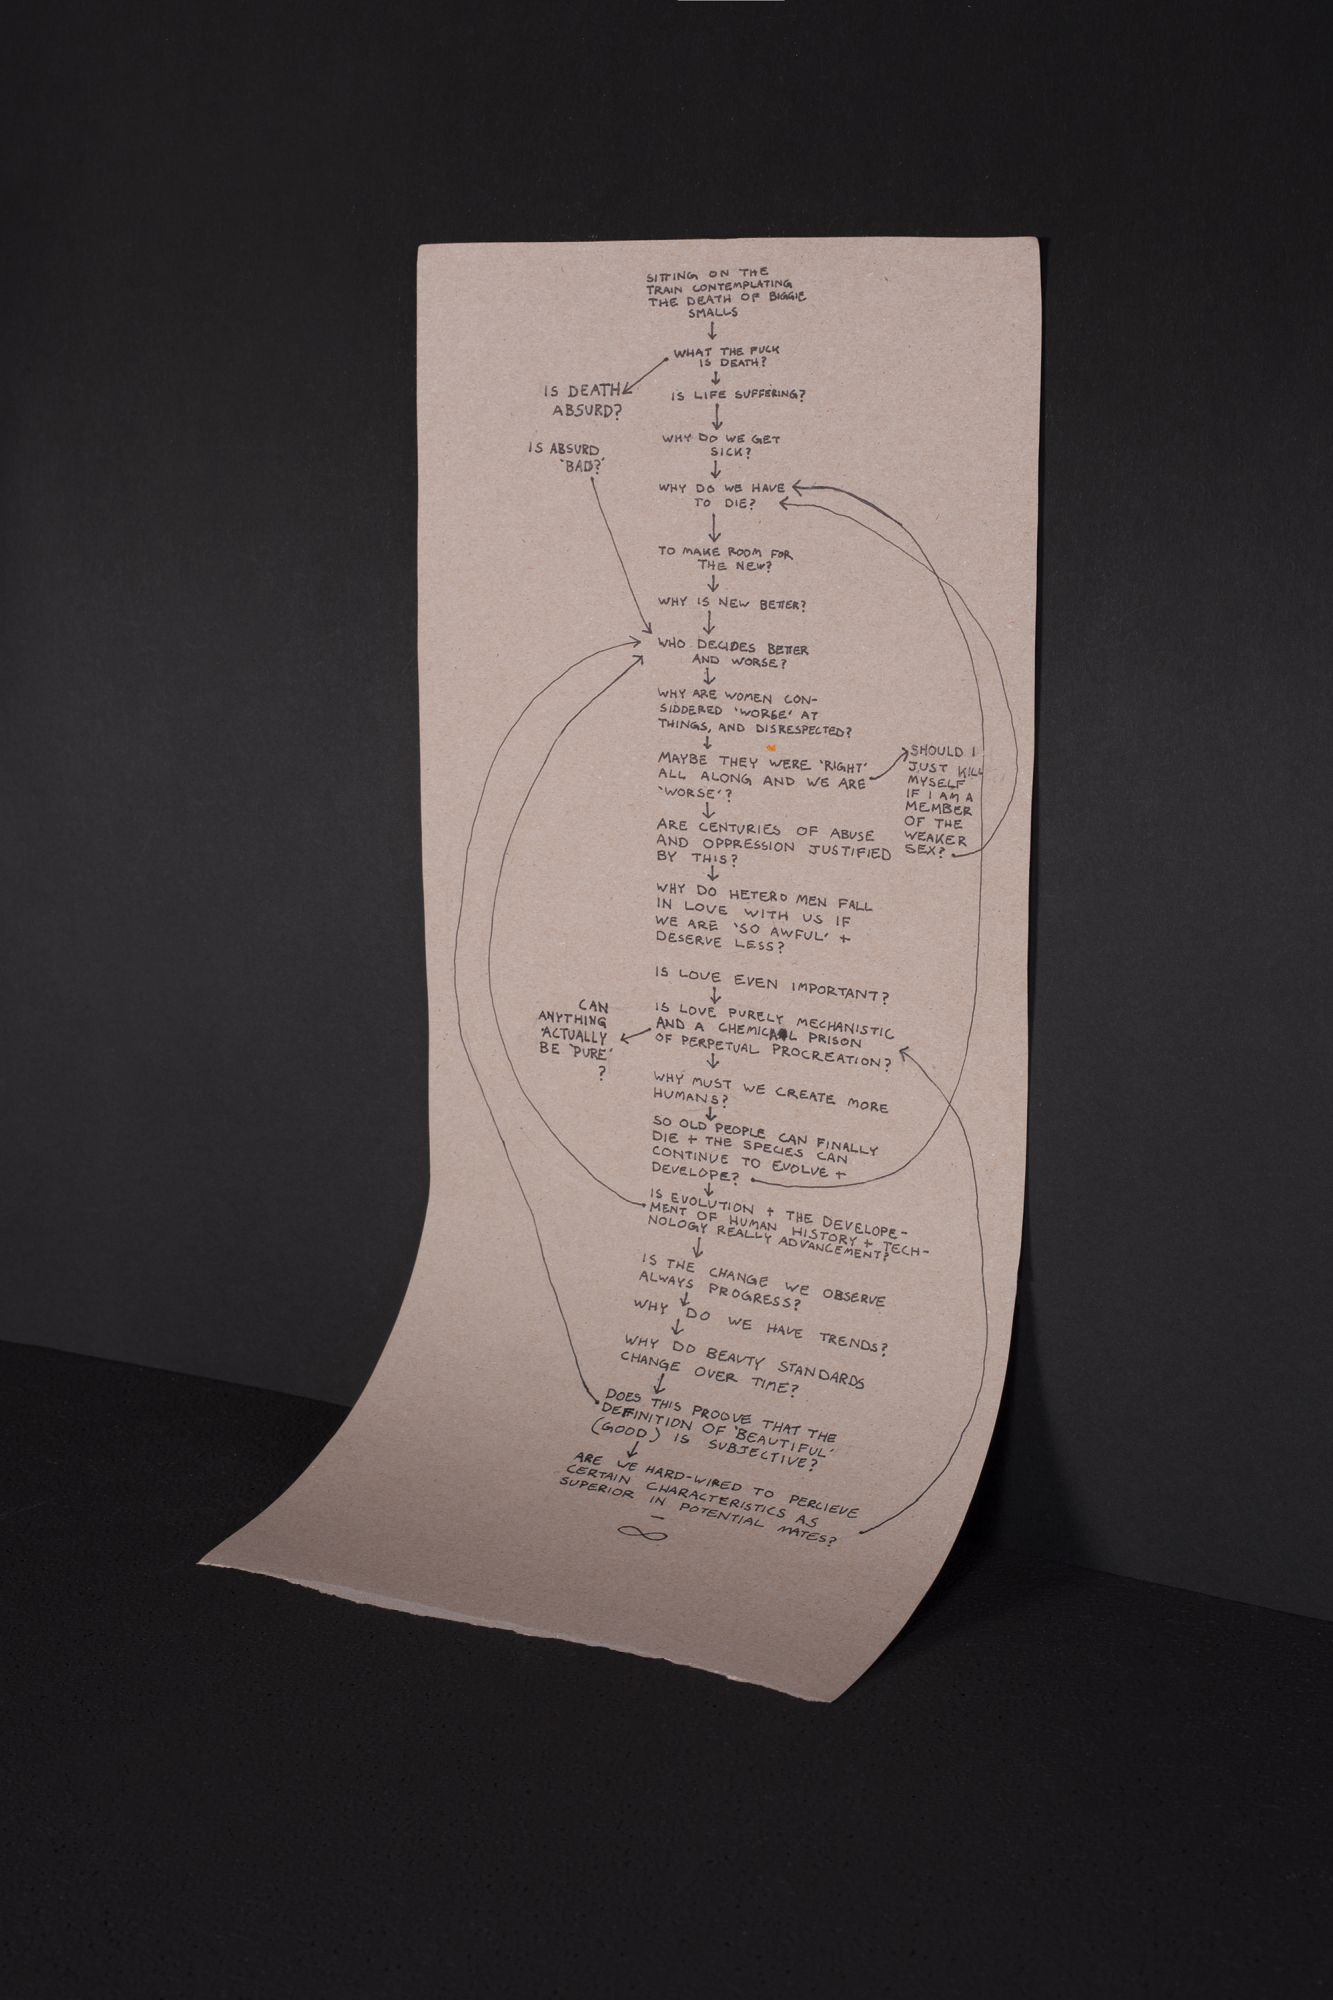 SITTING ON THE
TRAIN CONTEMPLATING
THE DEATH OF BIGGIE
SMALLS
WHAT THE FUCK
IS DEATH?
IS DEATH
ABSURD?
IS LIFE SUFFERING?
IS ABSURD
'BAD?'
WHY DO WE GET
SICK?
WHY DO WE HAVE
TO DIE?
TO MAKE ROOM FOR
THE NEW?
WHY IS NEW BETTER?
WHO DECIDES BETTER
AND WORSE?
WHY ARE WOMEN CON-
SIDDERED 'WORSE' AT
THINGS, AND DISRESPECTED?
MAYBE THEY WERE 'RIGHT'
ALL ALONG AND WE ARE
'WORSE'?
SHOULD I
JUST KILL
MYSELF
IF I AM A
MEMBER
OF THE
WEAKER
SEX?
ARE CENTURIES OF ABUSE
AND OPPRESSION JUSTIFIED
BY THIS?
WHY DO HETERO MEN FALL
IN LOVE WITH US IF
WE ARE 'SO AWFUL' +
DESERVE LESS?
IS LOVE EVEN IMPORTANT?
IS LOVE PURELY MECHANISTIC
AND A CHEMICAL PRISON
OF PERPETUAL PROCREATION?
CAN
ANYTHING
'ACTUALLY
BE 'PURE'
?
WHY MUST WE CREATE MORE
HUMANS?
SO OLD PEOPLE CAN FINALLY
DIE + THE SPECIES CAN
CONTINUE TO EVOLVE +
DEVELOPE?
IS EVOLUTION + THE DEVELOPE-
MENT OF HUMAN HISTORY + TECH-
NOLOGY REALLY ADVANCEMENT?
IS THE CHANGE WE OBSERVE
ALWAYS PROGRESS?
WHY DO WE HAVE TRENDS?
WHY DO BEAUTY STANDARDS
CHANGE OVER TIME?
DOES THIS PROOVE THAT THE
DEFINITION OF 'BEAUTIFUL'
(GOOD) IS SUBJECTIVE?
ARE WE HARD-WIRED TO PERCIEVE
CERTAIN CHARACTERISTICS AS
SUPERIOR IN POTENTIAL MATES?
∞